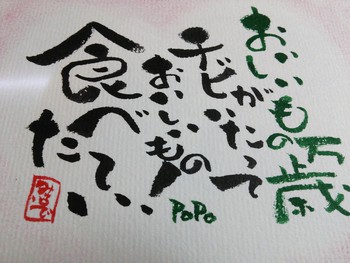 おいしいもの万歳
チビがいたって
おいしいもの
食べて
PoPo